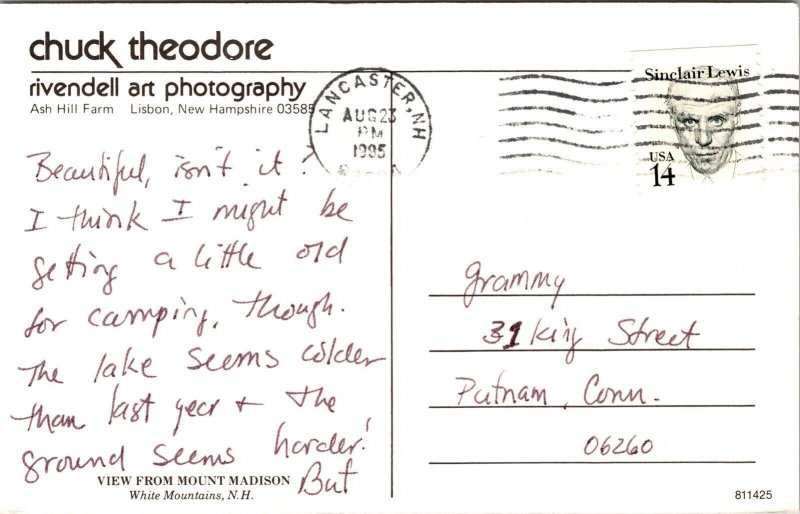 chuck theodore
rivendell art photography
Ash Hill Farm Lisbon, New Hampshire 03585
LANCASTER, NH
AUG 23
PM
1995
Sinclair Lewis
USA
14
Beautiful, isn't it?
I think I might be
getting a little old
for camping, though.
The lake seems colder
than last year + the
ground seems harder!
But
VIEW FROM MOUNT MADISON
White Mountains, N.H.
Grammy
31 King Street
Putnam, Conn.
06260
811425